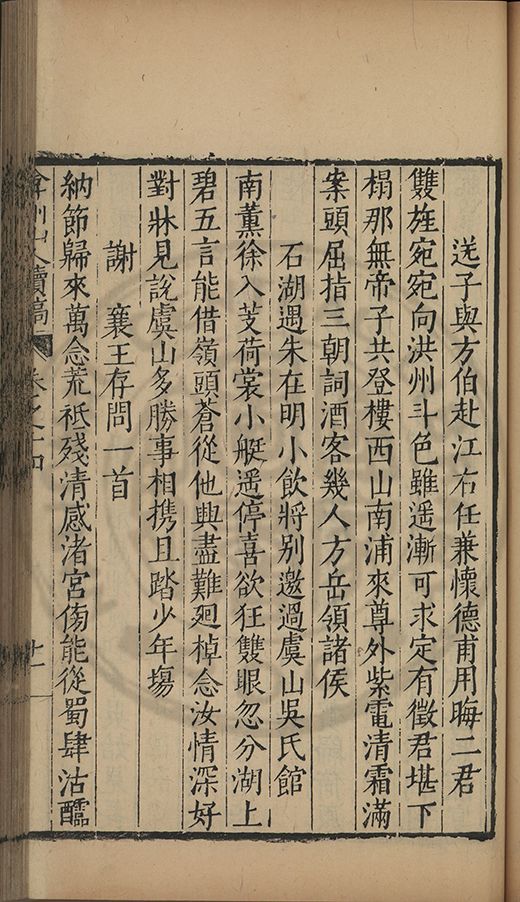 送子與方伯赴江右任兼懷德甫用晦二君
雙旌宛宛向洪州斗色雖遥漸可求定有徵君堪下
榻那無帝子共登樓西山南浦來尊外紫電清霜滿
案頭屈指三朝詞酒客幾人方岳領諸侯
石湖遇朱在明小飲將别邀過虞山吳氏館
南薰徐入芰荷裳小艇遥停喜欲狂雙眼忽分湖上
碧五言能借嶺頭蒼從他興盡難廻棹念汝情深好
對牀見說虞山多勝事相携且踏少年塲
謝　襄王存問一首
納節歸來萬念荒祗殘清感渚宮傍能從蜀肆沽醽
弇州山人續稿　卷之十四　十一